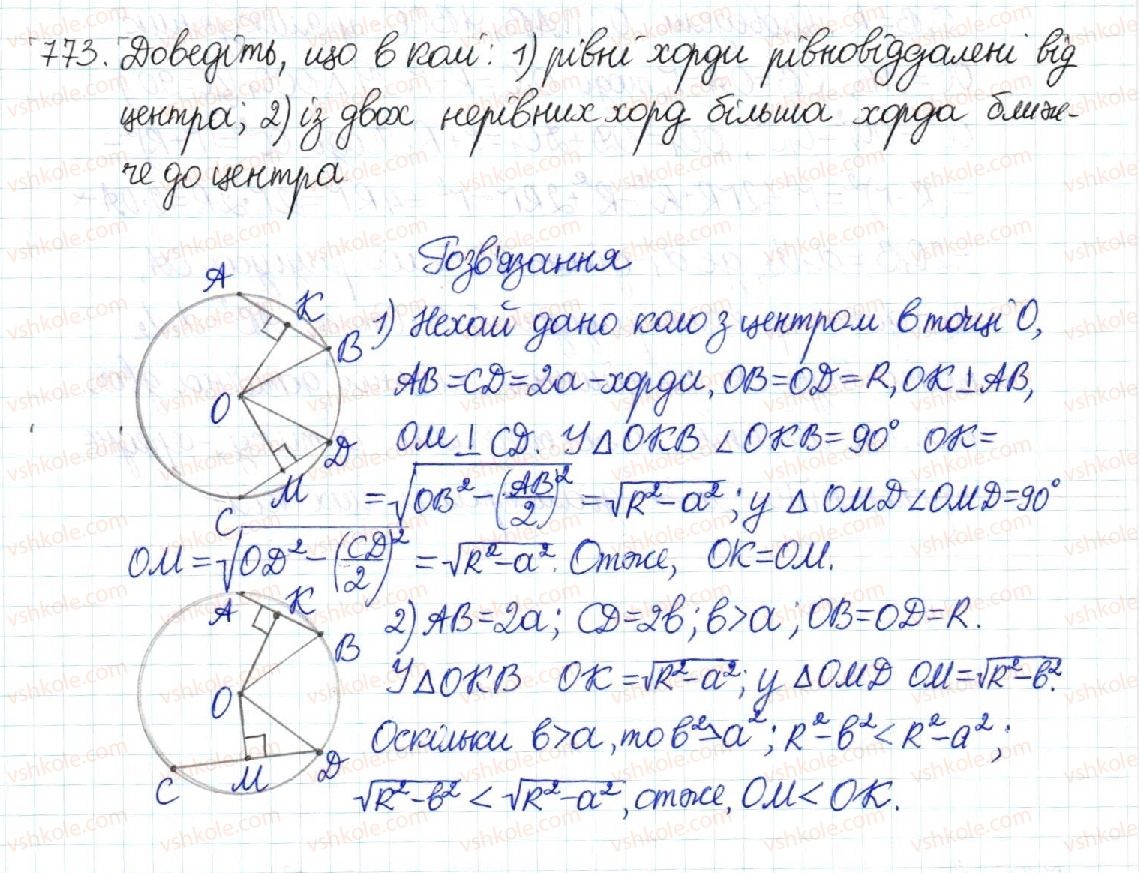 773. Доведіть, що в колі: 1) рівні хорди рівновіддалені від
центра; 2) із двох нерівних хорд більша хорда ближ-
че до центра
Розв'язання
A
K
B
O
D
M
C
1) Нехай дано коло з центром в точці O,
AB=CD=2a-хорди, OB=OD=R, OK⊥AB,
OM⊥CD. У △OKB ∠OKB=90° OK=
=√(OB²-(AB/2)²)=√(R²-a²); у △OMD ∠OMD=90°
OM=√(OD²-(CD/2)²)=√(R²-a²). Отже, OK=OM.
A
K
B
O
D
M
C
2) AB=2a; CD=2b; b>a; OB=OD=R.
У △OKB OK=√(R²-a²); у △OMD OM=√(R²-b²).
Оскільки b>a, то b²>a²; R²-b²<R²-a²;
√(R²-b²)<√(R²-a²), отже, OM<OK.
vshkole.com